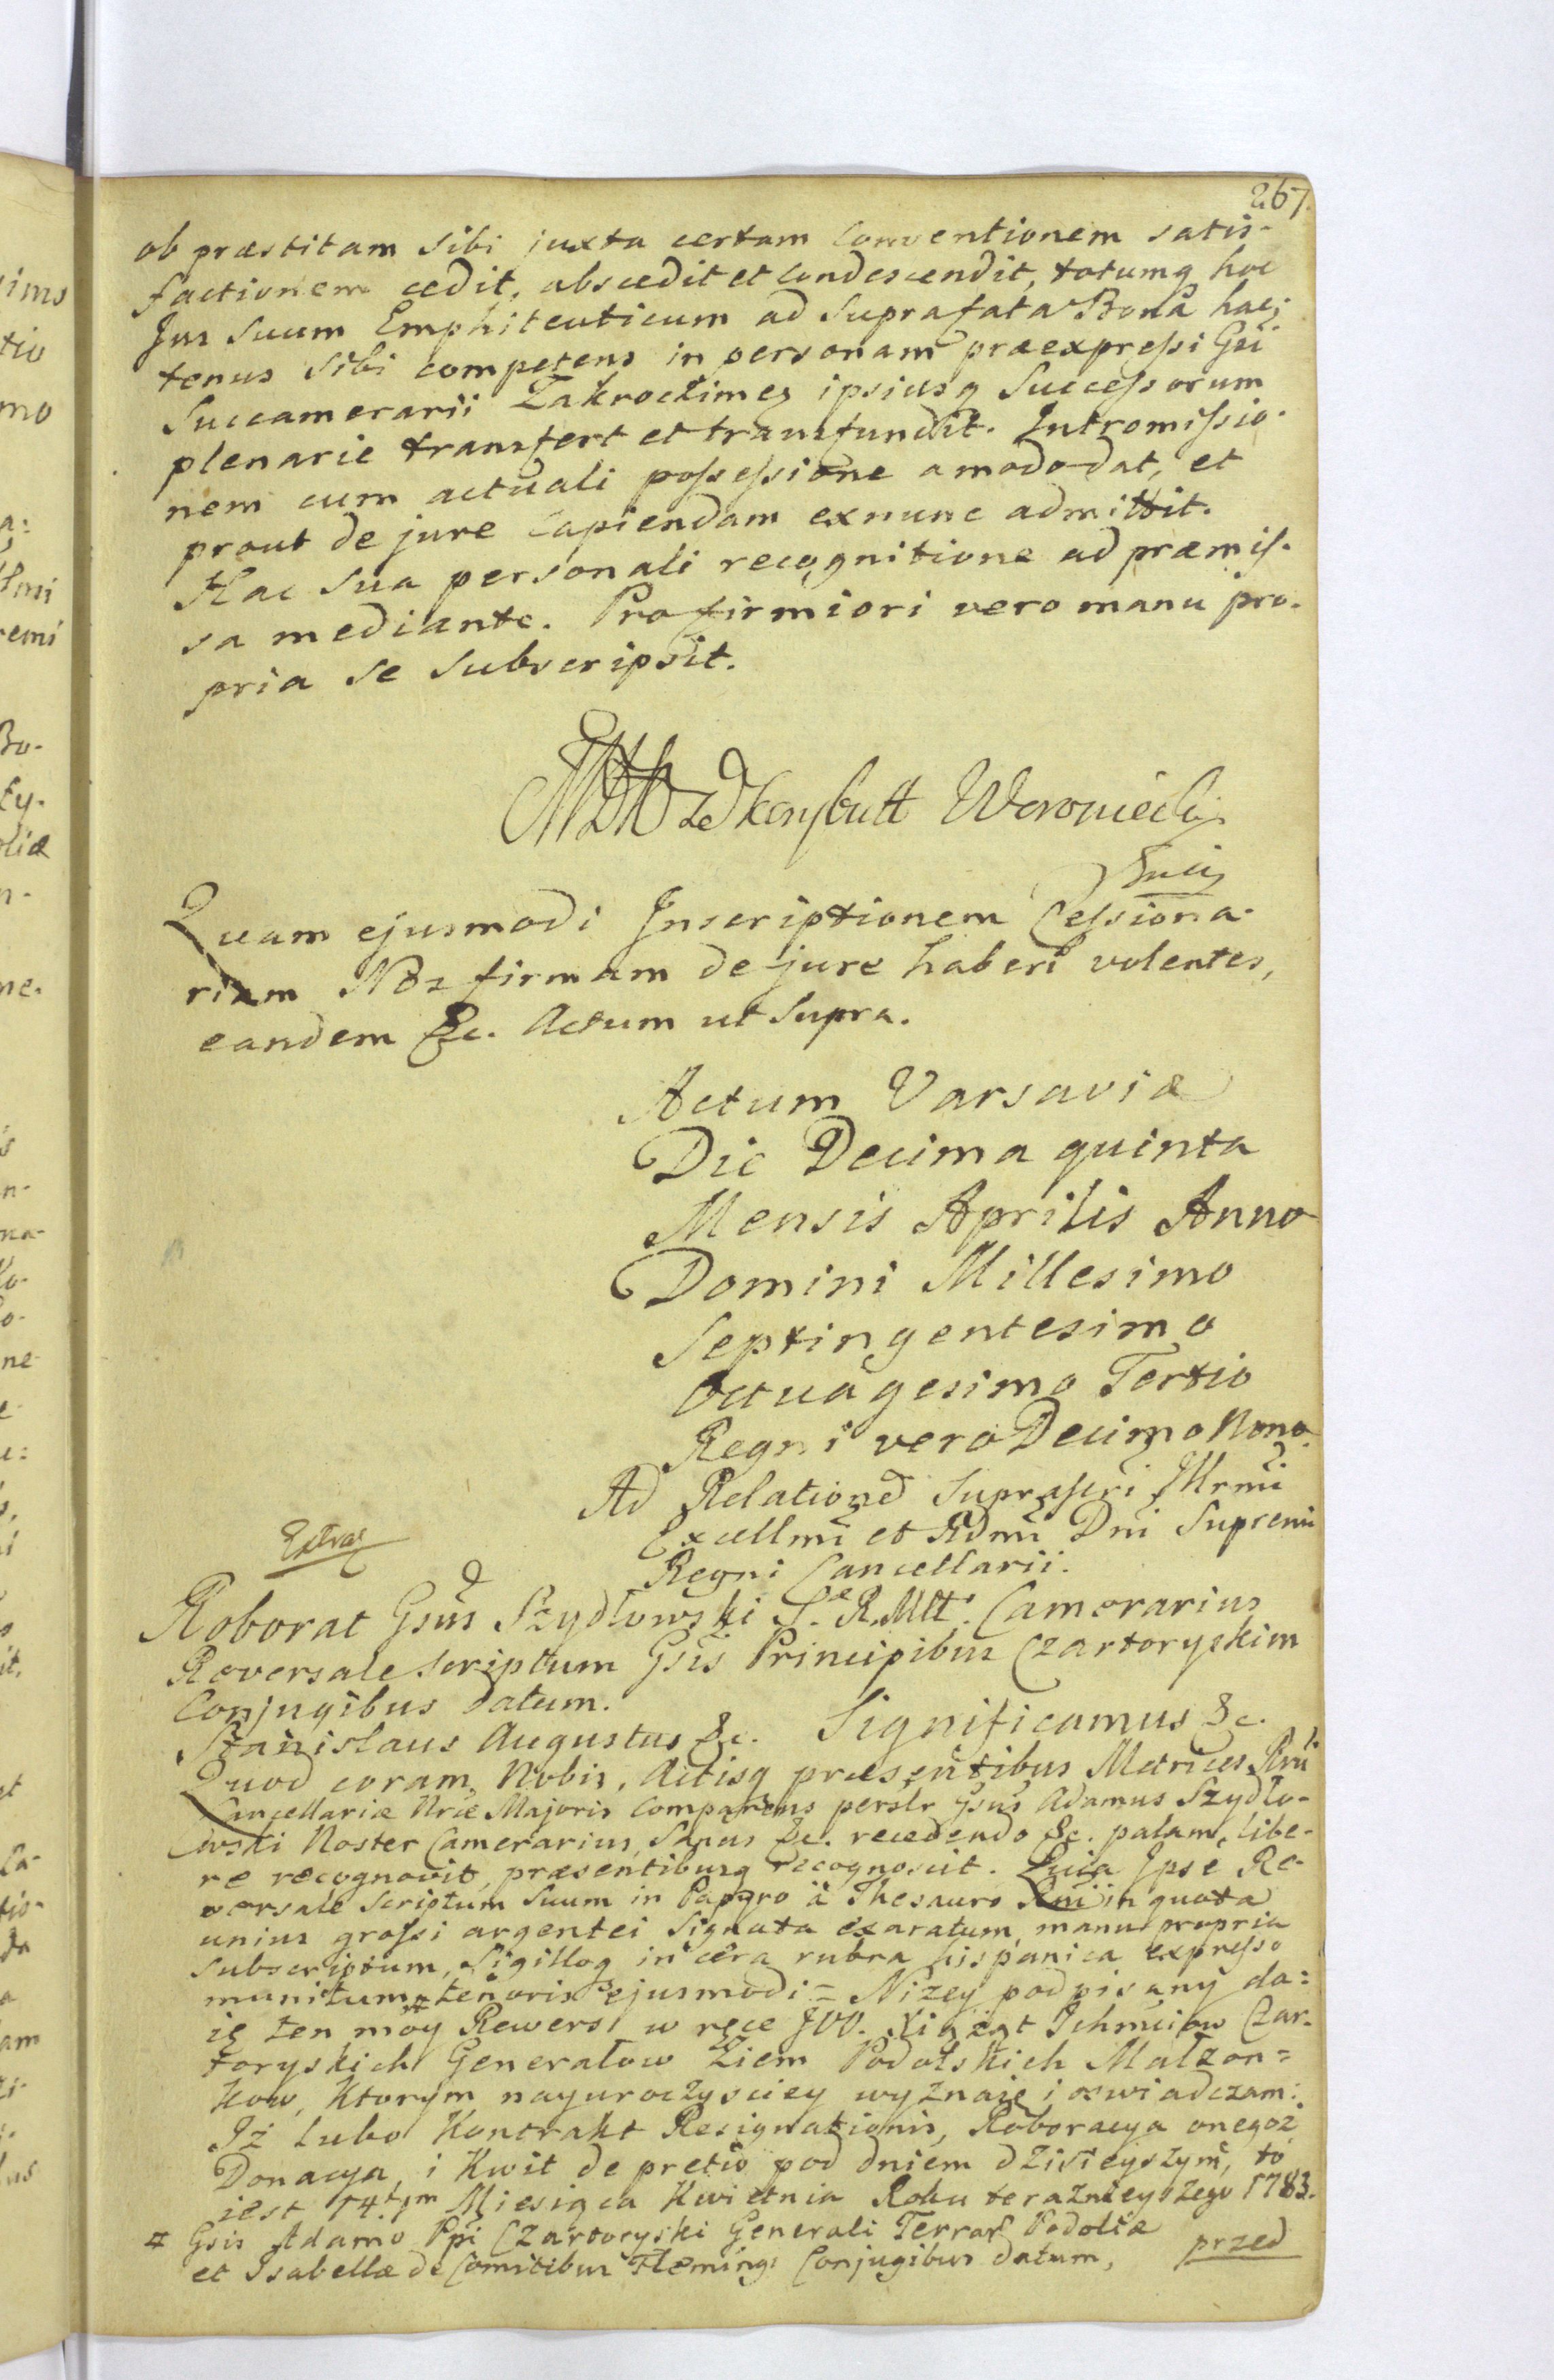 267.
ob præstitam sibi juxta certam Conventionem satis-
factionem cedit, abscedit et condescendit, totumq hoc
Jus suum Emphiteuticum ad suprafata Bona hac;
tenus sibi competens in personam præexpressi Gsi
Succamerarii Zakroctimen ipsiusq Successorum
plenarie transfert et transfundit. Intromissio-
nem cum actuali possessione amodo dat, et
prout de jure capiendam exnunc admittit.
Hac sua personali recognitione ad præmis-
sa mediante. Pro firmiori vero manu pro-
pria se subscripsit.
Korybutt Woroniecky
Quam ejusmodi Inscriptionem Cessiona-
riam Nos firmam de jure haberi volentes,
eandem &c. Actum ut supra.
Actum Varsaviæ
Die Decima quinta
Mensis Aprilis Anno
Domini Millesimo
Septingentesimo
Octuagesimo Tertio
Regni vero Decimo Nono.
Ad Relationem suprascri Illrmi
Excellmi et Rdmi Dni Supremi
Regni Cancellarii.
Roborat Gsus Szydłowski S. R. Mtt. Camerarius
Reversale scriptum Gsis Principibus Czartoryskim
Conjugibus datum.
Stanislaus Augustus &c. Significamus &c.
Quod coram Nobis, Actisq præsentibus Metrices Rni
Cancellariæ Nræ Majoris Comparens perslr Gsus Adamus Szydło-
wski Noster Camerarius, Sanus &c. recedendo &c. palam, libe-
re recognovit, præsentibusq recognoscit. Quia Ipse Re-
versale Scriptum suum in Papyro à Thesauro Rni in quota
unius grossi argentei signata exaratum, manu propria
subscriptum, Sigilloq in cera rubra hispanica expresso
munitum # tenoris ejusmodi = Niżey podpisany da=
ię ten moy Rewers w ręce JOO. Xiążąt Ichmciow Czar-
toryskich Generałow Ziem Podolskich Małżon=
kow, ktorym nayuroczyściey wyznaię i oświadczam:
Iż lubo Kontrakt Resignationis, Roboracya onegoż
Donacya, i Kwit de pretio pod dniem dzisieyszym, to
iest 14.tym Miesiąca Kwietnia Roku teraznieyszego 1783.
# Gsis Adamo Ppi Czartoryski Generali Terrar Podoliæ
et Isabellæ de Comitibus Fleming Conjugibus datum, przed